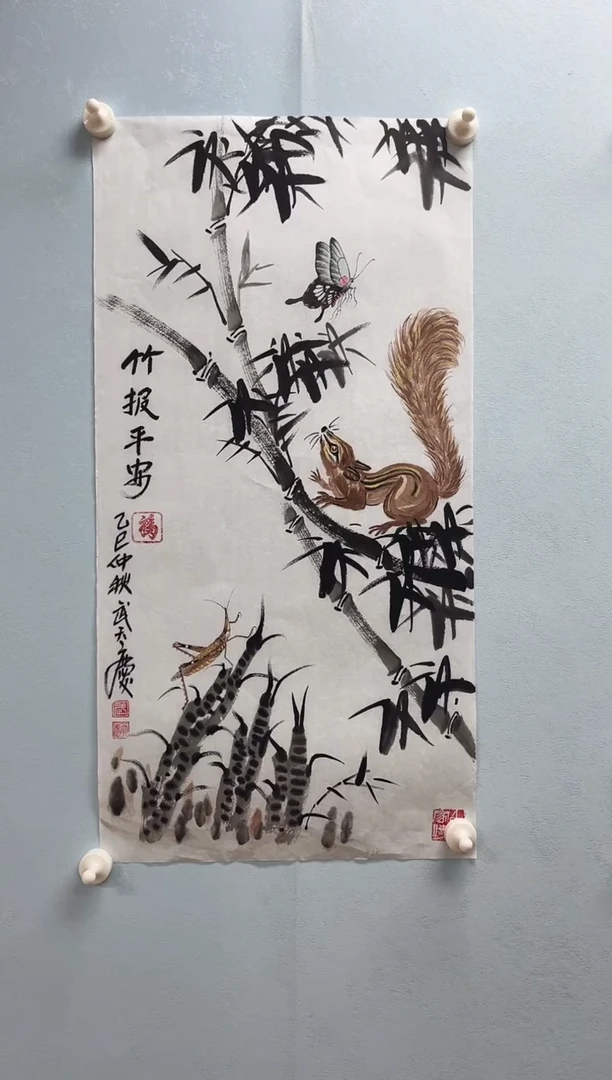 竹报平安
福
乙巳仲秋武天庆